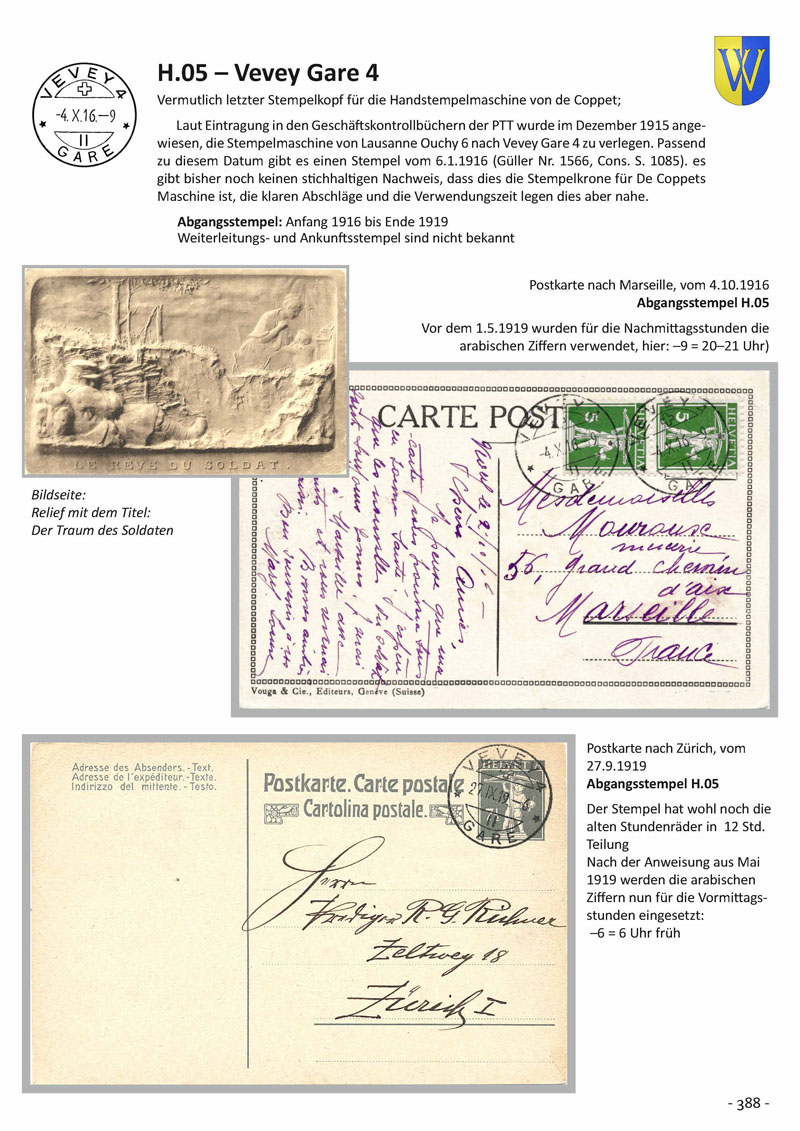 H.05 – Vevey Gare 4
VEVEY 4
-4.X.16.–9
II
GARE
W
Vermutlich letzter Stempelkopf für die Handstempelmaschine von de Coppet;
Laut Eintragung in den Geschäftskontrollbüchern der PTT wurde im Dezember 1915 ange-
wiesen, die Stempelmaschine von Lausanne Ouchy 6 nach Vevey Gare 4 zu verlegen. Passend
zu diesem Datum gibt es einen Stempel vom 6.1.1916 (Güller Nr. 1566, Cons. S. 1085). es
gibt bisher noch keinen stichhaltigen Nachweis, dass dies die Stempelkrone für De Coppets
Maschine ist, die klaren Abschläge und die Verwendungszeit legen dies aber nahe.
Abgangsstempel: Anfang 1916 bis Ende 1919
Weiterleitungs- und Ankunftsstempel sind nicht bekannt
Postkarte nach Marseille, vom 4.10.1916
Abgangsstempel H.05
Vor dem 1.5.1919 wurden für die Nachmittagsstunden die
arabischen Ziffern verwendet, hier: –9 = 20–21 Uhr)
LE REVE DU SOLDAT.
Bildseite:
Relief mit dem Titel:
Der Traum des Soldaten
CARTE POST
VEVEY
-4.X.16.-9
II
GARE
5
HELVETIA
5
HELVETIA
Mesdemoiselles
Mouroux
mercerie
56, Grand Chemin
d'aix
Marseille
France
Vouga & Cie., Editeurs, Genève (Suisse)
Adresse des Absenders. - Text.
Adresse de l'expéditeur. - Texte.
Indirizzo del mittente. - Testo.
Postkarte. Carte postale
Cartolina postale.
VEVEY
HELVETIA
27.IX.19.–6
II
GARE
Herrn
Prediger R. G.
Zeltweg 18
Zürich I
Postkarte nach Zürich, vom
27.9.1919
Abgangsstempel H.05
Der Stempel hat wohl noch die
alten Stundenräder in 12 Std.
Teilung
Nach der Anweisung aus Mai
1919 werden die arabischen
Ziffern nun für die Vormittags-
stunden eingesetzt:
–6 = 6 Uhr früh
- 388 -